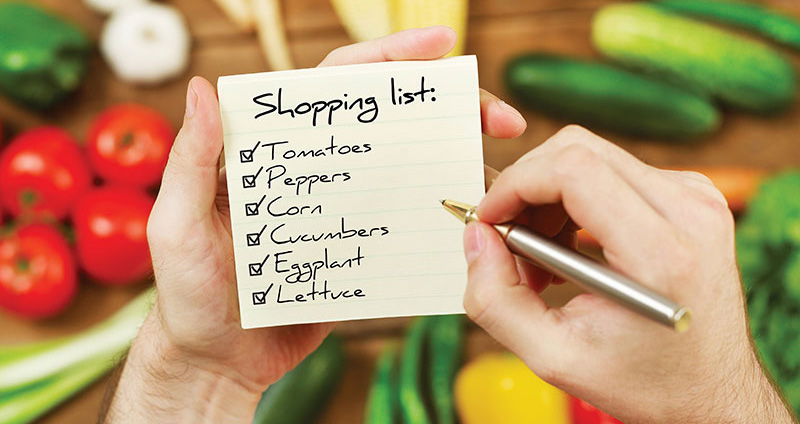 Shopping list:
Tomatoes
Peppers
Corn
Cucumbers
Eggplant
Lettuce